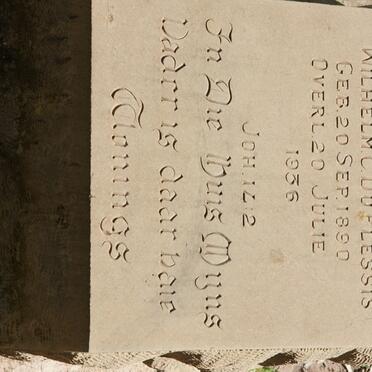 WILHELM C. DU PLESSIS
GEB. 20 SEP. 1890
OVERL. 20 JULIE
1936
JOH. 14:2
In Die Huis Myns
Vader is daar vale
Wonings